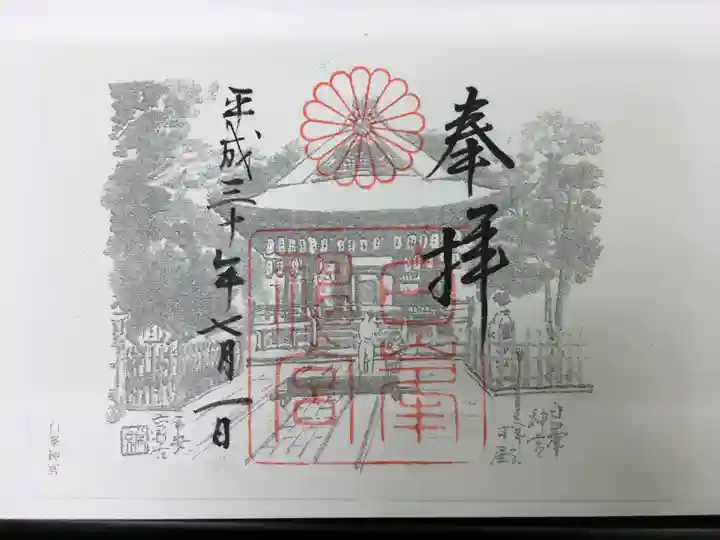 奉拝
平成三十年七月一日
白峯
神宮
白峯神宮